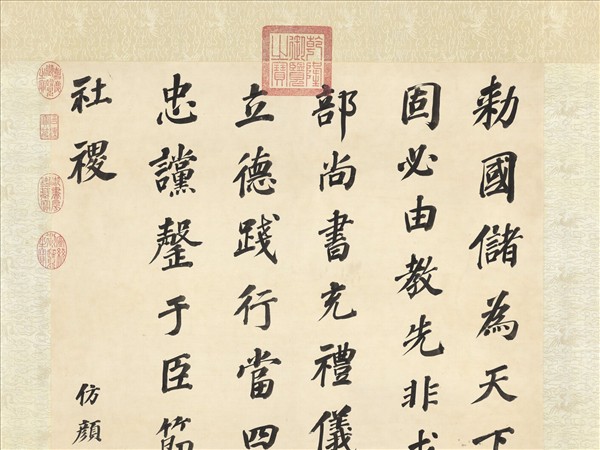 勅國儲為天下
固必由教先非求
部尚書充禮儀
立德踐行當四
忠讜罄于臣節
社稷
仿顏
乾隆御覽之寶